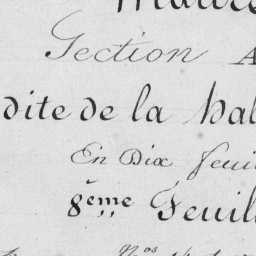 Section A
dite de la hal
En Dix feuil
8ème Feuil
Nos